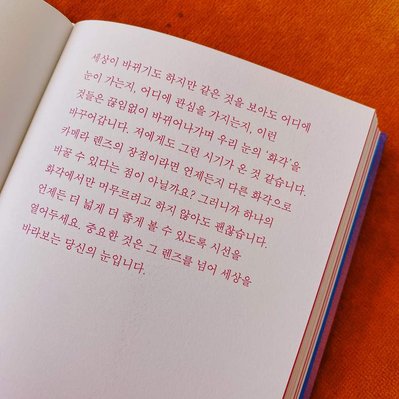 세상이 바뀌기도 하지만 같은 것을 보아도 어디에
눈이 가는지, 어디에 관심을 가지는지, 이런
것들은 끊임없이 바뀌어나가며 우리 눈의 '화각'을
바꾸어갑니다. 저에게도 그런 시기가 온 것 같습니다.
카메라 렌즈의 장점이라면 언제든지 다른 화각으로
바꿀 수 있다는 점이 아닐까요? 그러니까 하나의
화각에서만 머무르려고 하지 않아도 괜찮습니다.
언제든 더 넓게 더 좁게 볼 수 있도록 시선을
열어두세요. 중요한 것은 그 렌즈를 넘어 세상을
바라보는 당신의 눈입니다.